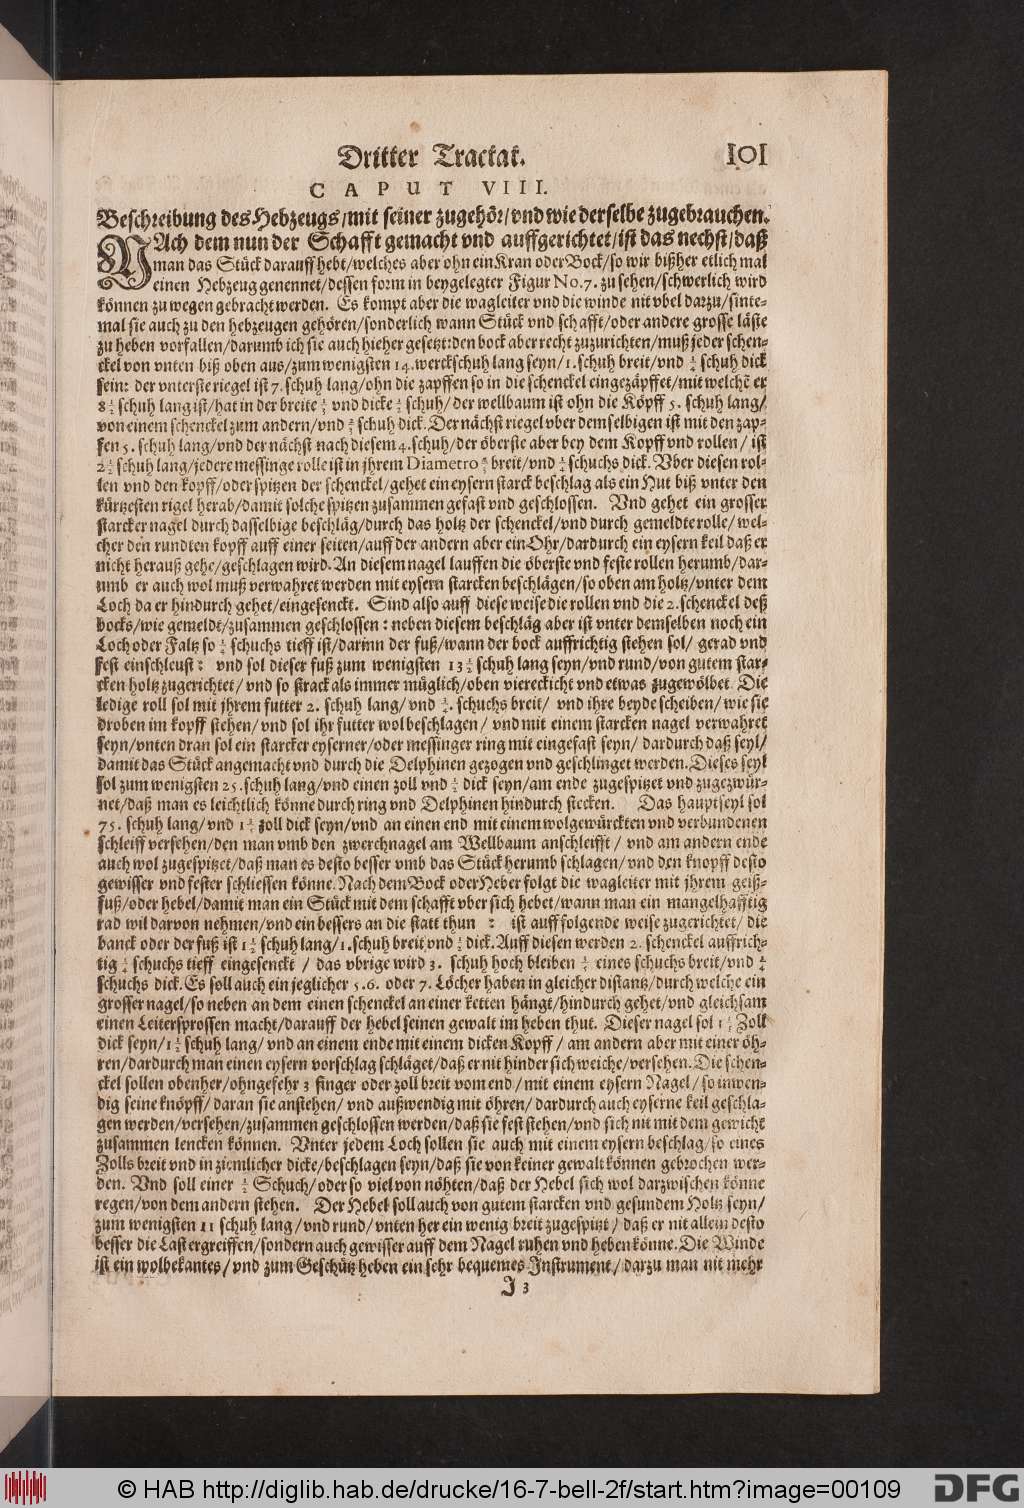 Dritter Tractat. 101
CAPUT VIII.
Beschreibung des Hebzeugs/mit seiner zugehör/vnd wie derselbe zugebrauchen.
NAch dem nun der Schafft gemacht vnd auffgerichtet/ist das nechst/daß
man das Stück darauff hebt/welches aber ohn ein Kran oder Bock/so wir bißher etlich mal
einen Hebzeug genennet/dessen form in beygelegter Figur No. 7. zu sehen/schwerlich wird
können zu wegen gebracht werden. Es kompt aber die wagleiter vnd die winde nit vbel darzu/sinte-
mal sie auch zu den hebzeugen gehören/sonderlich wann Stück vnd schafft/oder andere grosse läste
zu heben vorfallen/darumb ich sie auch hieher gesetzt: den bock aber recht zuzurichten/muß jeder schen-
ckel von vnten biß oben aus/zum wenigsten 14. werckschuh lang seyn/1. schuh breit/vnd schuh dick
sein: der vnterste riegel ist 7. schuh lang/ohn die zapffen so in die schenckel eingezäpffet/mit welchẽ er
8 1/2 schuh lang ist/hat in der breite vnd dicke schuh/der wellbaum ist ohn die Köpff 5. schuh lang/
von einem schenckel zum andern/vnd schuh dick. Der nächst riegel vber demselbigen ist mit den zap-
fen 5. schuh lang/vnd der nächst nach diesem 4. schuh/der öberste aber bey dem Kopff vnd rollen/ ist
2 1/2 schuh lang/jedere messinge rolle ist in jhrem Diametro breit/vnd schuchs dick. Vber diesen rol-
len vnd den kopff/oder spitzen der schenckel/gehet ein eysern starck beschlag als ein Hut biß vnter den
kürtzesten rigel herab/damit solche spitzen zusammen gefast vnd geschlossen. Vnd gehet ein grosser
starcker nagel durch dasselbige beschläg/durch das holtz der schenckel/vnd durch gemeldte rolle/wel-
cher den rundten kopff auff einer seiten/auff der andern aber ein Ohr/dardurch ein eysern keil daß er
nicht herauß gehe/geschlagen wird. An diesem nagel lauffen die öberste vnd feste rollen herumb/dar-
umb er auch wol muß verwahret werden mit eysern starcken beschlägen/so oben am holtz/vnter dem
Loch da er hindurch gehet/eingesenckt. Sind also auff diese weise die rollen vnd die 2. schenckel deß
bocks/wie gemeldt/zusammen geschlossen: neben diesem beschläg aber ist vnter demselben noch ein
Loch oder Faltz so schuchs tieff ist/darinn der fuß/wann der bock auffrichtig stehen sol/ gerad vnd
fest einschleust: vnd sol dieser fuß zum wenigsten 13 1/2 schuh lang seyn/vnd rund/von gutem star-
cken holtz zugerichtet/ vnd so strack als immer müglich/oben viereckicht vnd etwas zugewölbet. Die
ledige roll sol mit jhrem futter 2. schuh lang/ vnd schuchs breit/ vnd ihre beyde scheiben/ wie sie
droben im kopff stehen/ vnd sol ihr futter wol beschlagen/ vnd mit einem starcken nagel verwahret
seyn/vnten dran sol ein starcker eyserner/oder messinger ring mit eingefast seyn/ dardurch daß seyl/
damit das Stück angemacht vnd durch die Delphinen gezogen vnd geschlinget werden. Dieses seyl
sol zum wenigsten 25. schuh lang/vnd einen zoll vnd dick seyn/am ende zugespitzet vnd zugezwür-
net/daß man es leichtlich könne durch ring vnd Delphinen hindurch stecken. Das hauptseyl sol
75. schuh lang/vnd 1 1/2 zoll dick seyn/vnd an einen end mit einem wolgewürckten vnd verbundenen
schleiff versehen/den man vmb den zwerchnagel am Wellbaum anschleifft/ vnd am andern ende
auch wol zugespitzet/daß man es desto besser vmb das Stück herumb schlagen/vnd den knopff desto
gewisser vnd fester schliessen könne. Nach dem Bock oder Heber folgt die wagleiter mit jhrem geiß-
fuß/oder hebel/damit man ein Stück mit dem schafft vber sich hebet/wann man ein mangelhafftig
rad wil darvon nehmen/vnd ein bessers an die statt thun : ist auff folgende weise zugerichtet/ die
banck oder der fuß ist 1 1/2 schuh lang/1. schuh breit vnd dick. Auff diesen werden 2. schenckel auffrich-
tig schuchs tieff eingesenckt / das vbrige wird 3. schuh hoch bleiben eines schuchs breit/vnd
schuchs dick. Es soll auch ein jeglicher 5. 6. oder 7. Löcher haben in gleicher distantz/durch welche ein
grosser nagel/so neben an dem einen schenckel an einer ketten hängt/hindurch gehet/vnd gleichsam
einen Leitersprossen macht/darauff der hebel seinen gewalt im heben thut. Dieser nagel sol 1 Zoll
dick seyn/1 1/2 schuh lang/ vnd an einem ende mit einem dicken Kopff/ am andern aber mit einer öh-
ren/dardurch man einen eysern vorschlag schläget/daß er nit hinder sich weiche/versehen. Die schen-
ckel sollen obenher/ohngefehr 3 finger oder zoll breit vom end/mit einem eysern Nagel/ so inwen-
dig seine knöpff/ daran sie anstehen/ vnd außwendig mit öhren/ dardurch auch eyserne keil geschla-
gen werden/versehen/zusammen geschlossen werden/daß sie fest stehen/vnd sich nit mit dem gewicht
zusammen lencken können. Vnter jedem Loch sollen sie auch mit einem eysern beschlag/so eines
Zolls breit vnd in ziemlicher dicke/beschlagen seyn/daß sie von keiner gewalt können gebrochen wer-
den. Vnd soll einer 1/2 Schuch/oder so viel von nöhten/daß der Hebel sich wol darzwischen könne
regen/von dem andern stehen. Der Hebel soll auch von gutem starcken vnd gesundem Holtz seyn/
zum wenigsten 11 schuh lang/vnd rund/vnten her ein wenig breit zugespitzt/ daß er nit allein desto
besser die Last ergreiffen/sondern auch gewisser auff dem Nagel ruhen vnd heben könne. Die Winde
ist ein wolbekantes/vnd zum Geschütz heben ein sehr bequemes Instrument/darzu man nit mehr
J 3
© HAB http://diglib.hab.de/drucke/16-7-bell-2f/start.htm?image=00109
DFG